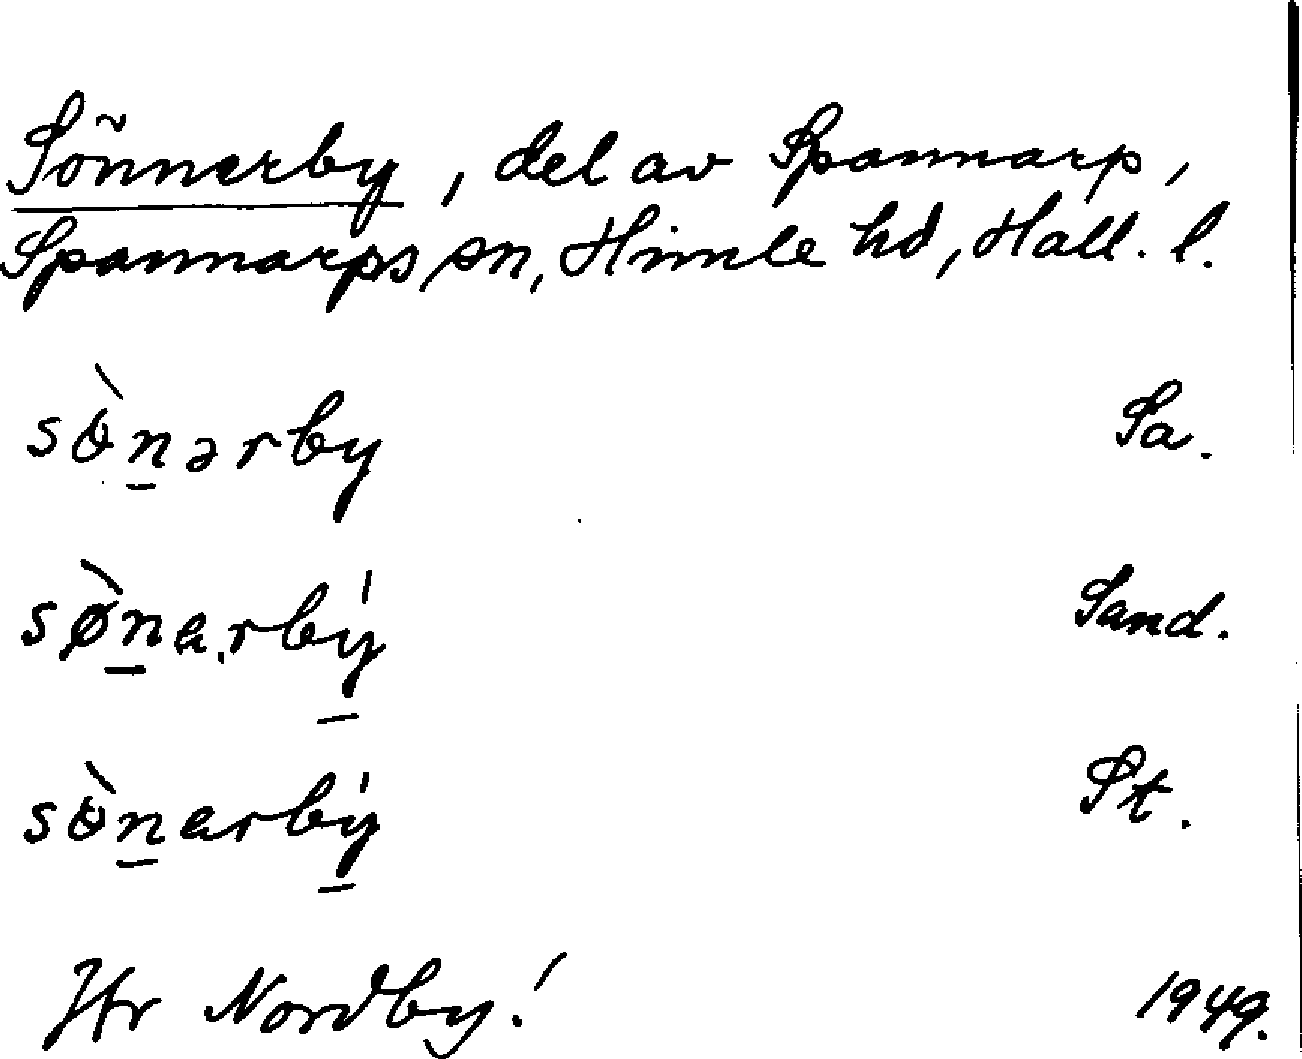 Sönnerby, del av Spannarp,
Spannarps sn, Himle hd, Hall. l.
sɵ̀n̲ərby Sa.
sø̀n̲a.rbý̲ Sand.
sɵ̀n̲arbý̲ St.
Jfr Nordby! 1949.